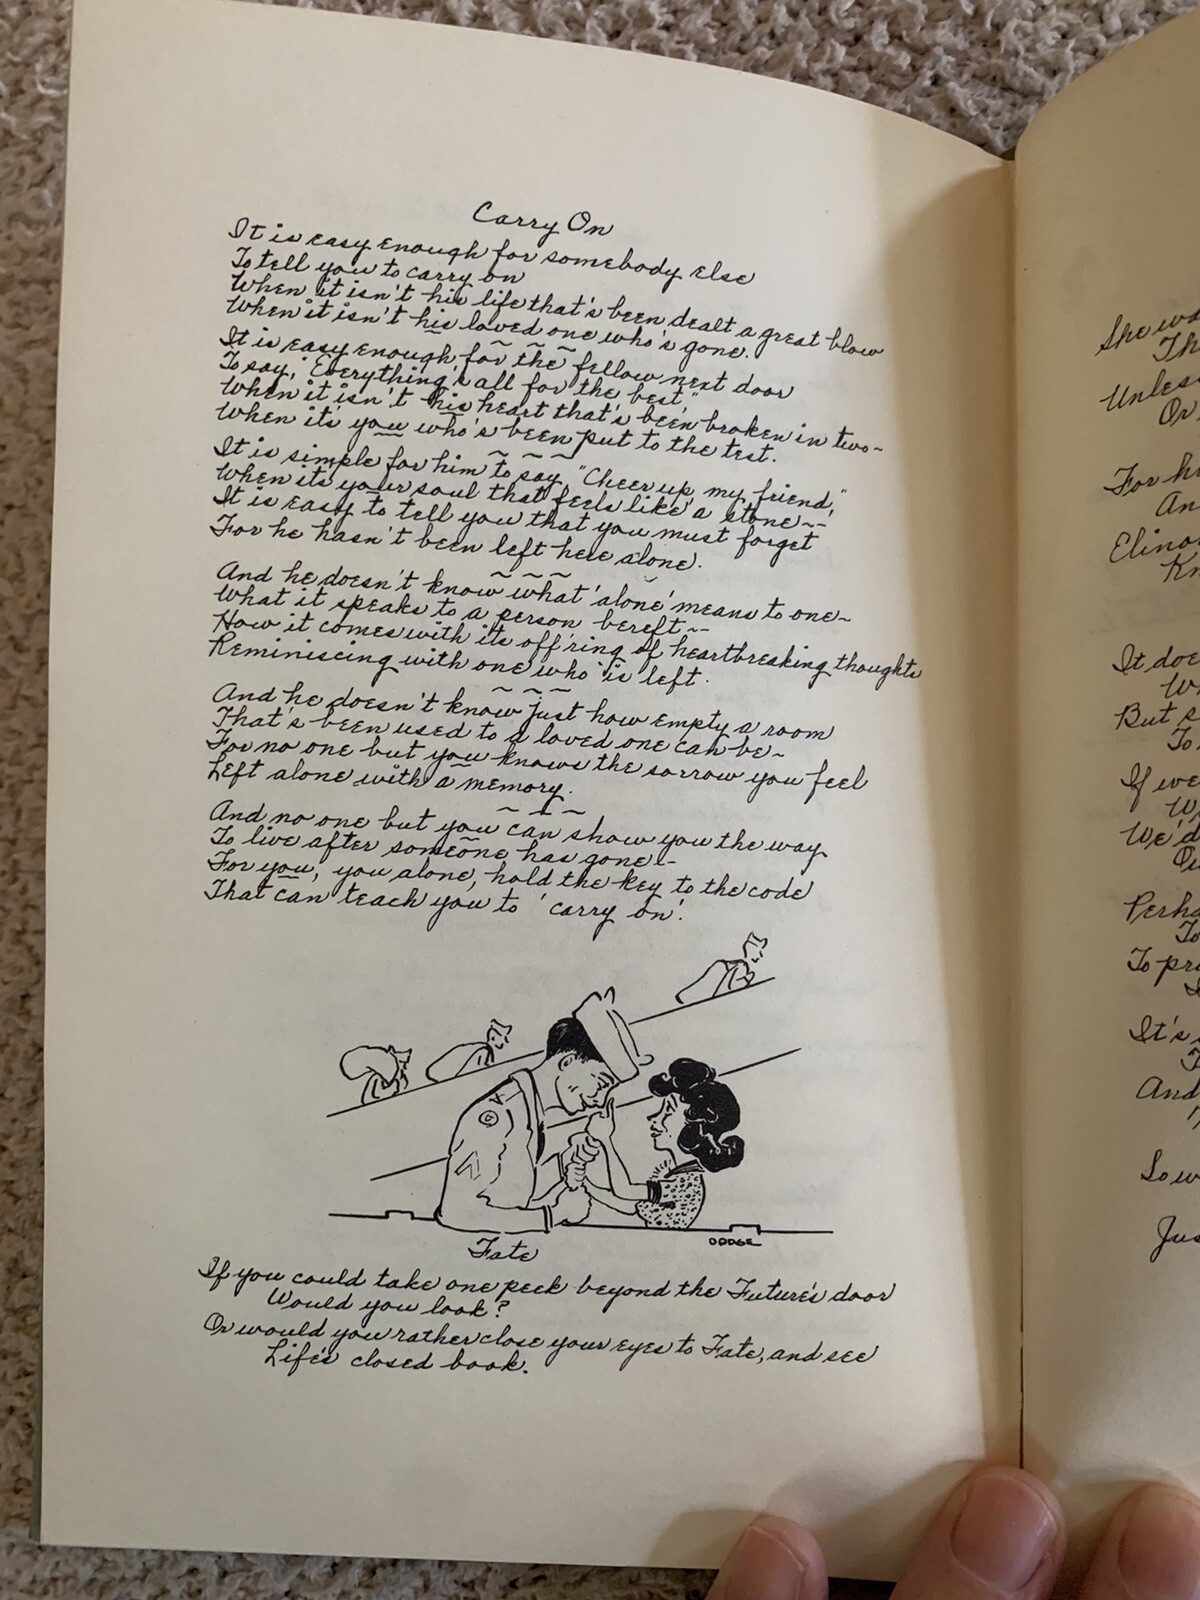 Carry On
It is easy enough for somebody else
To tell you to carry on
When it isn't his life that's been dealt a great blow
When it isn't his loved one who's gone.
~ ~ ~
It is easy enough for the fellow next door
To say, "Everything's all for the best"
When it isn't his heart that's been broken in two~
When it's you who's been put to the test.
~ ~ ~
It is simple for him to say, "Cheer up, my friend,"
When its your soul that feels like a stone~~
It is easy to tell you that you must forget
For he hasn't been left here alone.
~ ~ ~
And he doesn't know what 'alone' means to one~
What it speaks to a person bereft~~
How it comes with its off'ring of heartbreaking thoughts
Reminiscing with one who is left.
~ ~ ~
And he doesn't know just how empty a room
That's been used to a loved one can be~
For no one but you knows the sorrow you feel
Left alone with a memory.
~ ~ ~
And no one but you can show you the way
To live after someone has gone~
For you, you alone, hold the key to the code
That can teach you to 'carry on'.
DODGE
Fate
If you could take one peek beyond the Future's door
Would you look?
Or would you rather close your eyes to Fate, and see
Life's closed book.
She
Th
Unles
Or
For h
An
Elino
Kn
It doe
W
But s
To
If we
W
We'd
Perha
To
To pr
It's
And
So w
Jus